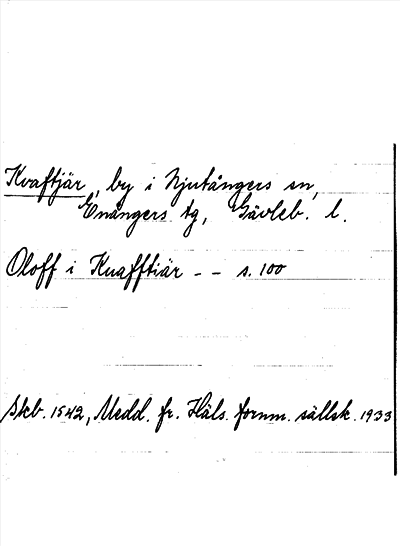 Kvaftjär, by i Njutångers sn,
Enångers tg, Gävleb. l.
Oloff i Kuafftiär - - s. 100
Skb. 1542, Medd. fr. Häls. fornm. sällsk. 1933